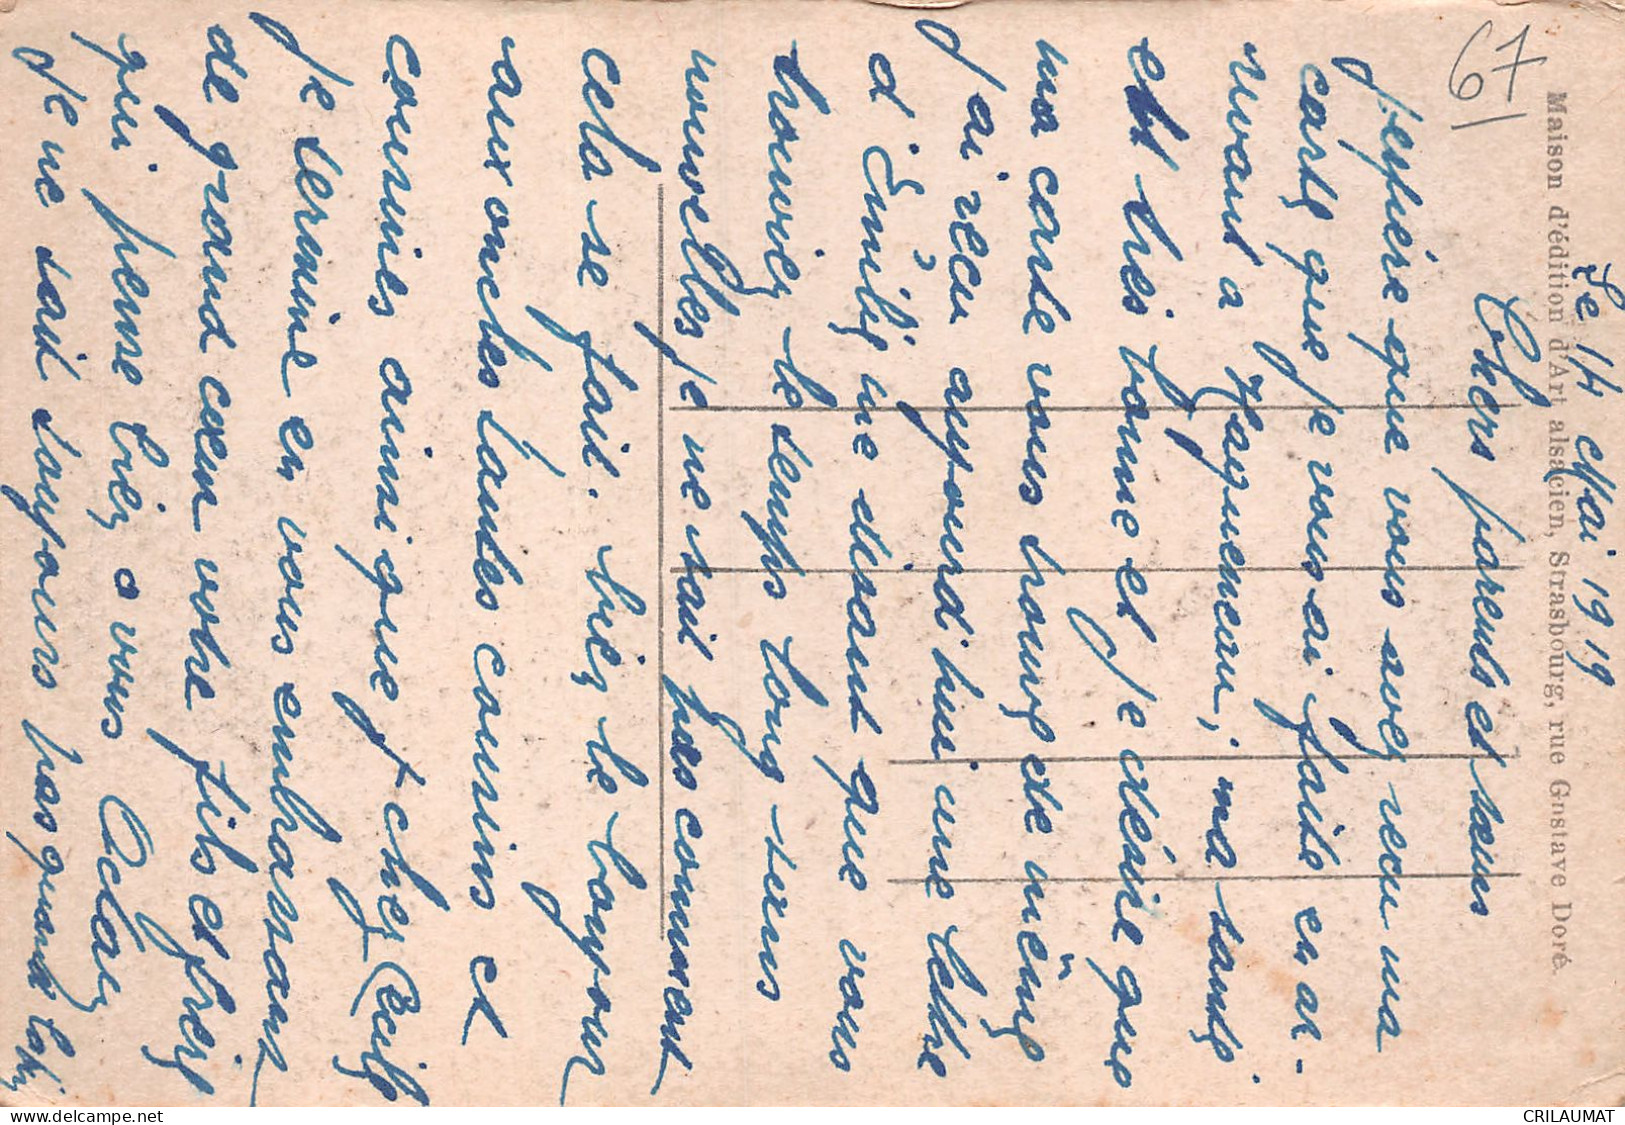 67
Maison d'édition d'Art alsacien, Strasbourg, rue Gustave Doré.
Le 14 Mai 1919
Chers parents et sœurs
J'espère que vous avez recu ma
carte que je vous ai faite en ar-
rivant a Haguenau, ma santé
est très bonne et je désire que
ma carte vous trouve de même
J'ai recu aujourd'hui une lettre
d'Emile me disant que vous
trouviez le temps long sens
nouvelles je ne sait pas comment
cela se fait. bien le bonjour
aux oncles tantes cousins et
cousines ainsi que chez Cecile
Je termine en vous embrassant
de grand cœur votre fils et frère
qui pense bien a vous
Je ne sait toujours pas quand